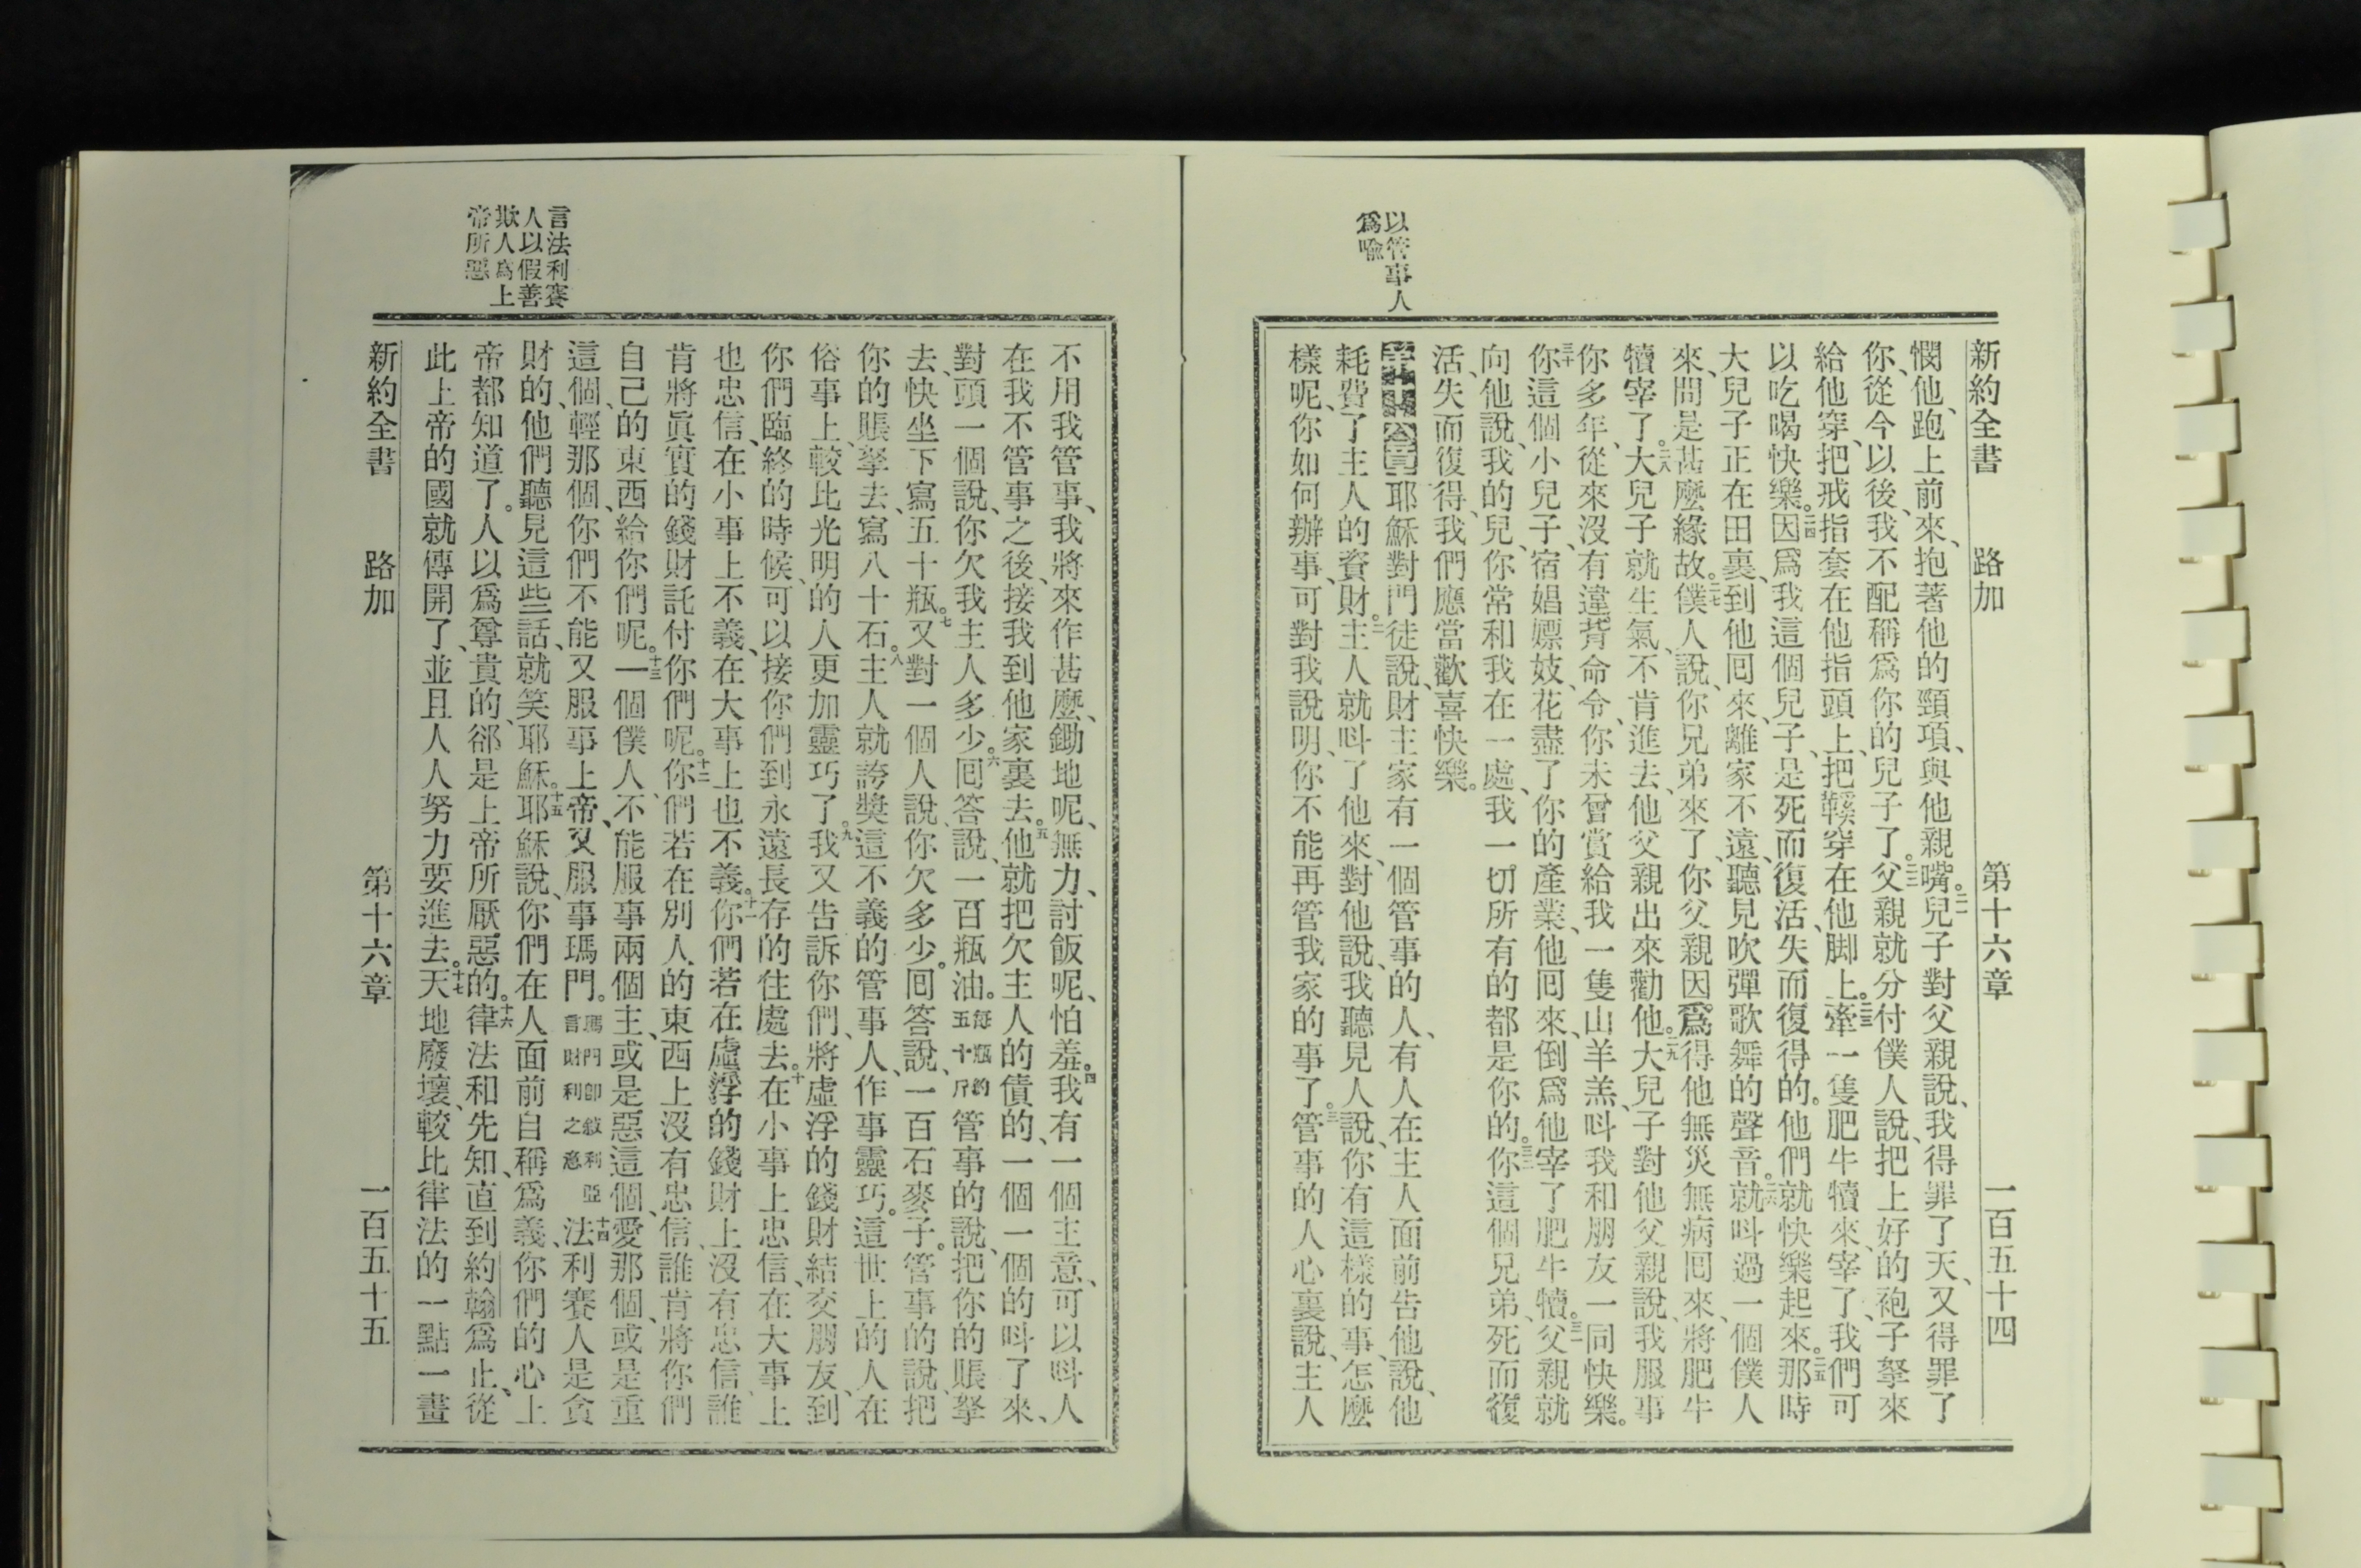 新約全書 路加 第十六章 一百五十四
憫他、跑上前來、抱著他的頸項、與他親嘴。二一兒子對父親說、我得罪了天、又得罪了
你、從今以後、我不配稱爲你的兒子了。二二父親就分付僕人說、把上好的袍子拏來
給他穿、把戒指套在他指頭上、把鞵穿在他脚上。二三牽一隻肥牛犢來、宰了、我們可
以吃喝快樂。二四因爲我這個兒子、是死而復活、失而復得的。他們就快樂起來。二五那時
大兒子正在田裏、到他囘來、離家不遠、聽見吹彈歌舞的聲音。二六就呌過一個僕人
來、問是甚麼緣故。二七僕人說、你兄弟來了、你父親因爲得他無災無病囘來、將肥牛
犢宰了。二八大兒子就生氣、不肯進去、他父親出來勸他。二九大兒子對他父親說、我服事
你多年、從來沒有違背命令、你未曾賞給我一隻山羊羔、呌我和朋友一同快樂。
三十你這個小兒子、宿娼嫖妓、花盡了你的產業、他囘來、倒爲他宰了肥牛犢。三一父親就
向他說、我的兒、你常和我在一處、我一切所有的都是你的。三二你這個兄弟、死而復
活、失而復得、我們應當歡喜快樂。
以管事人
爲喩
第十六章耶穌對門徒說、財主家有一個管事的人、有人在主人面前告他說、他
耗費了主人的資財。二主人就呌了他來、對他說、我聽見人說、你有這樣的事、怎麼
樣呢、你如何辦事、可對我說明、你不能再管我家的事了。三管事的人心裏說、主人
不用我管事、我將來作甚麼、鋤地呢、無力、討飯呢、怕羞。四我有一個主意、可以呌人
在我不管事之後、接我到他家裏去。五他就把欠主人的債的、一個一個的呌了來、
對頭一個說、你欠我主人多少。六囘答說、一百瓶油。每瓶約五十斤管事的說、把你的賬拏
去、快坐下寫五十瓶。七又對一個人說、你欠多少。囘答說、一百石麥子。管事的說、把
你的賬拏去、寫八十石。八主人就誇獎這不義的管事人、作事靈巧。這世上的人在
俗事上、較比光明的人更加靈巧了。九我又告訴你們、將虛浮的錢財結交朋友、到
你們臨終的時候、可以接你們到永遠長存的住處去。十在小事上忠信、在大事上
也忠信、在小事上不義、在大事上也不義。十一你們若在虛浮的錢財上沒有忠信、誰
肯將眞實的錢財託付你們呢。十二你們若在別人的東西上沒有忠信、誰肯將你們
自己的東西給你們呢。十三一個僕人、不能服事兩個主、或是惡這個、愛那個、或是重
這個、輕那個、你們不能又服事上帝、又服事瑪門。瑪門卽敘利亞言財利之意十四法利賽人是貪
言法利賽
人以假善
欺人爲上
帝所惡
財的、他們聽見這些話、就笑耶穌。十五耶穌說、你們在人面前自稱爲義、你們的心上
帝都知道了。人以爲尊貴的、郤是上帝所厭惡的。十六律法和先知、直到約翰爲止、從
此上帝的國就傳開了、並且人人努力要進去。十七天地廢壞、較比律法的一點一畫
新約全書 路加 第十六章 一百五十五